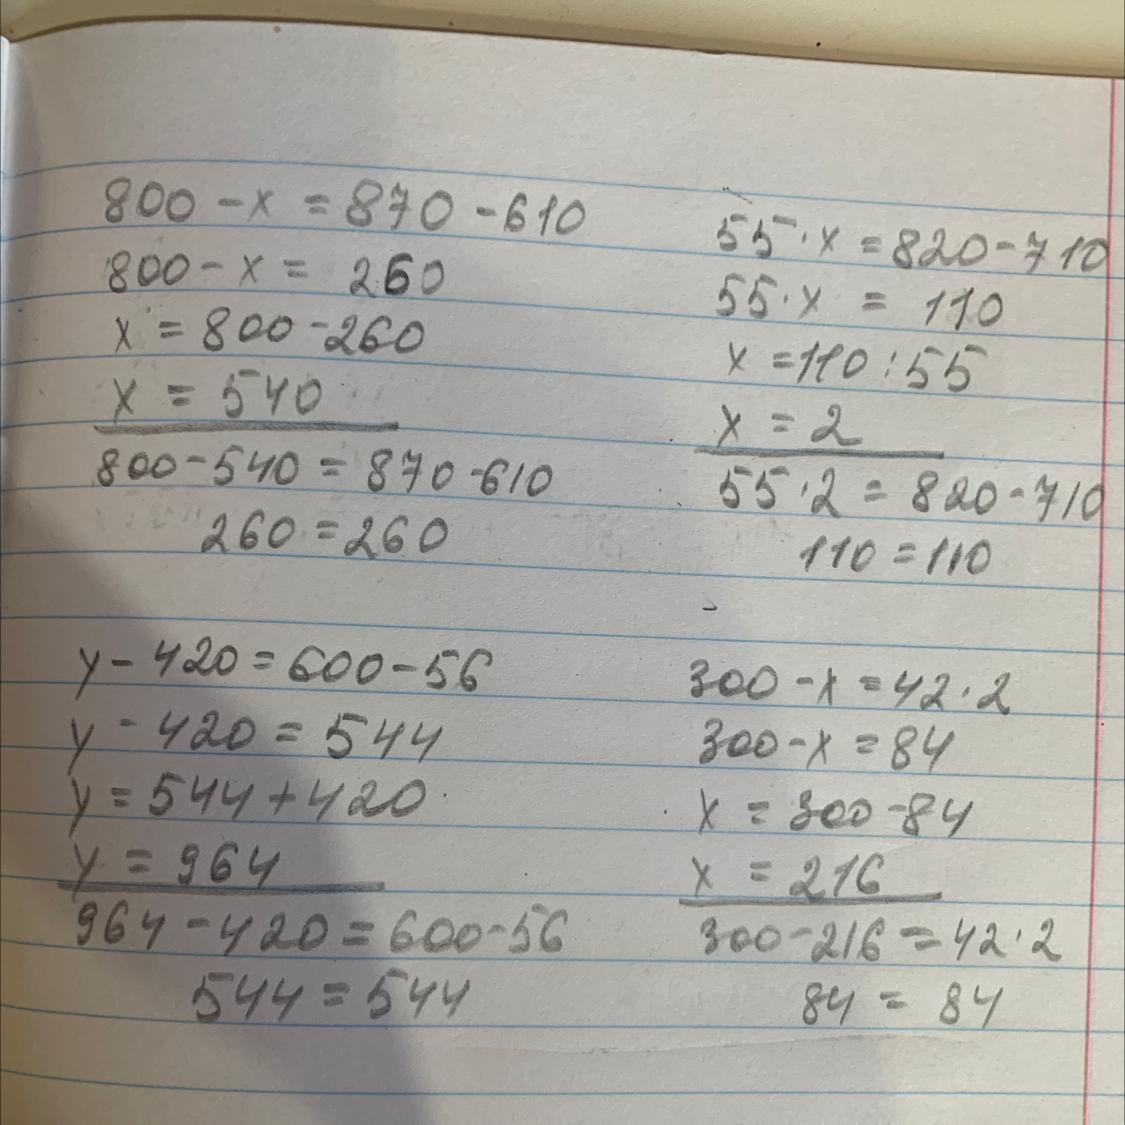 800 - x = 870 - 610
800 - x = 260
x = 800 - 260
x = 540
800 - 540 = 870 - 610
260 = 260
55 · x = 820 - 710
55 · x = 110
x = 110 : 55
x = 2
55 · 2 = 820 - 710
110 = 110
y - 420 = 600 - 56
y - 420 = 544
y = 544 + 420
y = 964
964 - 420 = 600 - 56
544 = 544
300 - x = 42 · 2
300 - x = 84
x = 300 - 84
x = 216
300 - 216 = 42 · 2
84 = 84